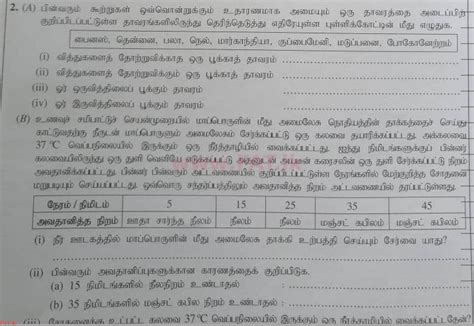 2. (A) பின்வரும் கூற்றுகள் ஒவ்வொன்றுக்கும் உதாரணமாக அமையும் ஒரு தாவரத்தை அடைப்பிற்
குறிப்பிடப்பட்டுள்ள தாவரங்களிலிருந்து தெரிந்தெடுத்து எதிரேயுள்ள புள்ளிக்கோட்டின் மீது எழுதுக.
பைனஸ், தென்னை, பலா, நெல், மார்காந்தியா, குப்பைமேனி, மடுப்பனை, போகோனேற்றம்
(i) வித்துகளைத் தோற்றுவிக்காத ஒரு பூக்காத் தாவரம்
(ii) வித்துகளைத் தோற்றுவிக்கும் ஒரு பூக்காத் தாவரம்
(iii) ஓர் ஒருவித்திலைப் பூக்கும் தாவரம்
(iv) ஓர் இருவித்திலைப் பூக்கும் தாவரம்
(B) உணவுச் சமிபாட்டுச் செயன்முறையில் மாப்பொருளின் மீது அமைலேசு நொதியத்தின் தாக்கத்தைச்
காட்டுவதற்கு நீருடன் மாப்பொருளும் அமைலேசும் சேர்க்கப்பட்டு ஒரு கலவை தயாரிக்கப்பட்டது. அக்கலவை
37 °C வெப்பநிலையில் இருக்கும் ஒரு நீர்த்தாழியில் வைக்கப்பட்டது. ஐந்து நிமிடங்களுக்குப் பின்னர்
கலவையிலிருந்து ஒரு துளி வெளியே எடுக்கப்பட்டு கரைசலின் ஒரு துளி சேர்க்கப்பட்டு நிறம்
அவதானிக்கப்பட்டது. பின்னர் பின்வரும் அட்டவணையில் குறிப்பிடப்பட்டுள்ள நேரங்களில் மேற்குறித்த சோதனை
மறுபடியும் செய்யப்பட்டது. ஒவ்வொரு சந்தர்ப்பத்திலும் அவதானித்த நிறம் அட்டவணையில் தரப்பட்டுள்ளது.
நேரம் / நிமிடம் 5 15 25 35 45
அவதானித்த நிறம் ஊதா சார்ந்த நீலம் நீலம் நீலம் மஞ்சட் கபிலம் மஞ்சட் கபிலம்
(i) நீர் ஊடகத்தில் மாப்பொருளின் மீது அமைலேசு தாக்கி உற்பத்தி செய்யும் சேர்வை யாது?
(ii) பின்வரும் அவதானிப்புகளுக்கான காரணத்தைக் குறிப்பிடுக.
(a) 15 நிமிடங்களில் நீலநிறம் உண்டாதல் :
(b) 35 நிமிடங்களில் மஞ்சட் கபில நிறம் உண்டாதல் :
(iii) சோதனைக்கு உட்பட்ட கலவை 37 °C வெப்பநிலையில் இருக்கும் ஒரு நீர்த்தாழியில் வைக்கப்பட்டதேன்?